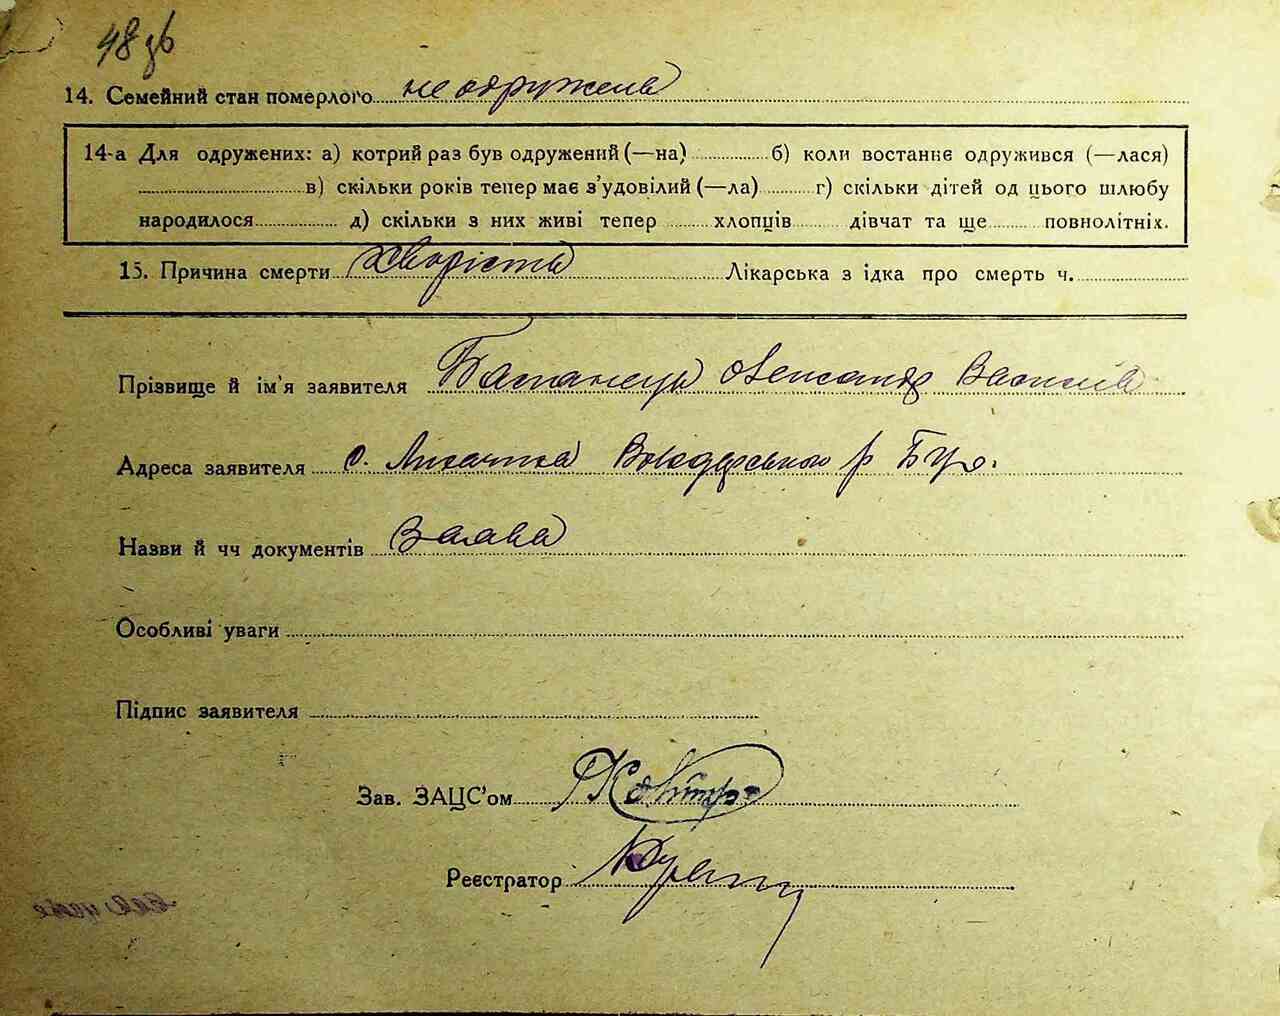 48 зв
14. Семейний стан померлого неодружена
14-а Для одружених: а) котрий раз був одружений (—на) б) коли востаннє одружився (—лася)
в) скільки років тепер має з'удовілий (—ла) г) скільки дітей од цього шлюбу
народилося д) скільки з них живі тепер хлопців дівчат та ще повнолітніх.
15. Причина смерти хворіста Лікарська з ідка про смерть ч.
Прізвище й ім'я заявителя Олександр Василів
Адреса заявителя с. р Бур.
Назви й чч документів Заява
Особливі уваги
Підпис заявителя
Зав. ЗАЦС'ом
Реєстратор